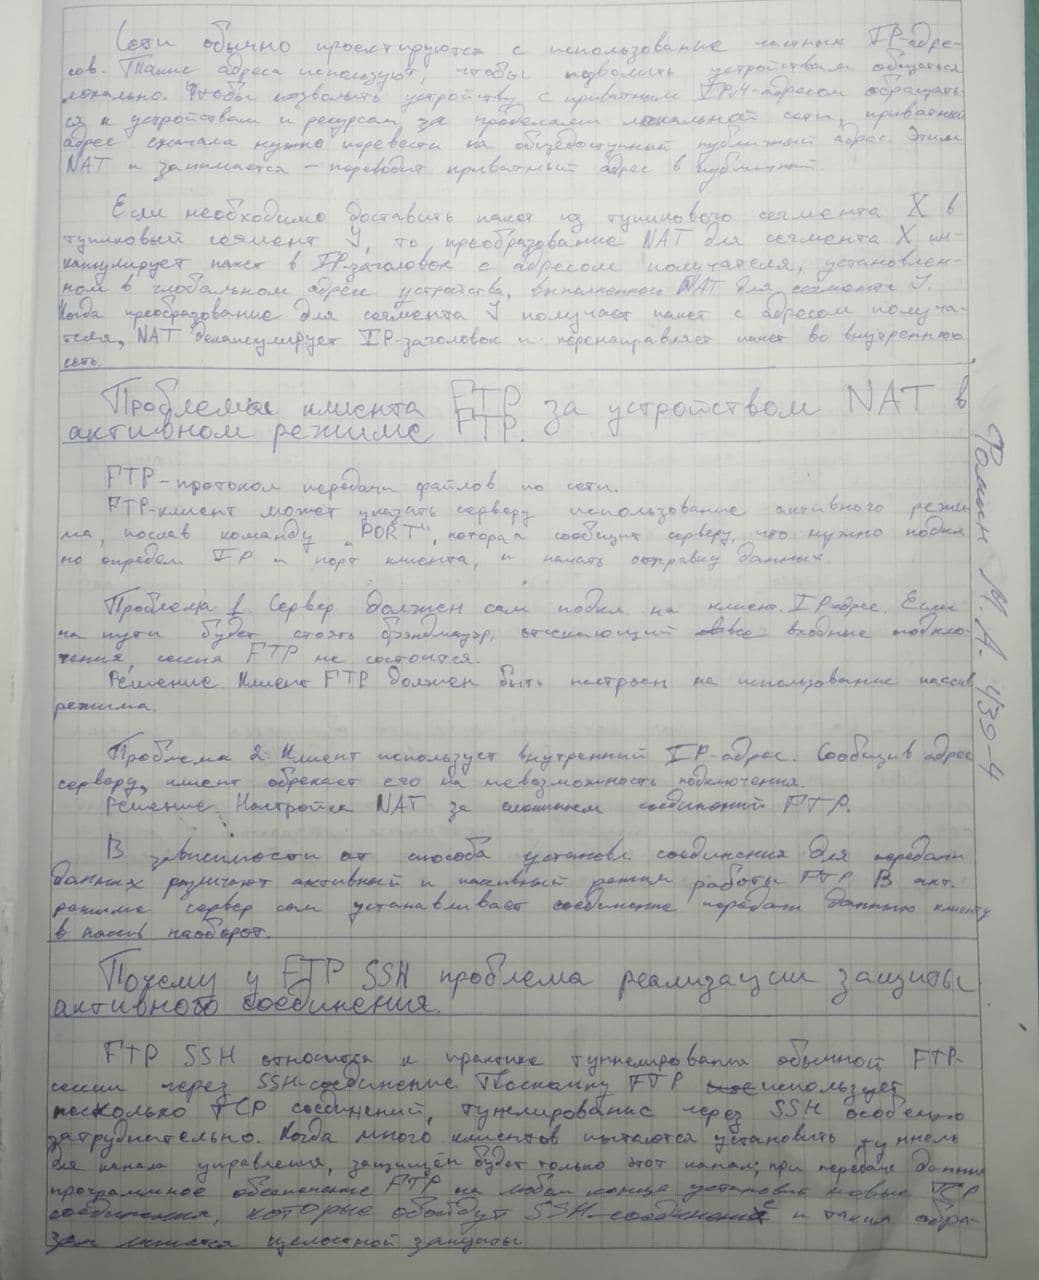 Сети обычно проектируются с использование частных IP-адре-
сов. Такие адреса используют, чтобы позволить устройствам общаться
локально. Чтобы позволить устройству с приватным IPv4-адресом обращать-
ся к устройствам и ресурсам за пределами локальной сети, приватный
адрес сначала нужно перевести на общедоступный публичный адрес. Этим
NAT и занимается – переводит приватный адрес в публичный.
Если необходимо доставить пакет из тупикового сегмента X в
тупиковый сегмент Y, то преобразование NAT для сегмента X ин-
капсулирует пакет в IP-заголовок с адресом получателя, установлен-
ном в глобальном адресе устройства, выполненное NAT для сегмента Y.
Когда преобразование для сегмента Y получает пакет с адресом получа-
теля, NAT декапсулирует IP-заголовок и перенаправляет пакет во внутреннюю
сеть.
Проблемы клиента FTP за устройством NAT в
активном режиме FTP.
FTP-протокол передачи файлов по сети.
FTP-клиент может указать серверу использование активного режи
ма, послав команду "PORT", которая сообщит серверу, что нужно подкл
на определ IP и порт клиента, и начать отправку данных.
Проблема 1. Сервер должен сам подкл. на клиент. IP адрес. Если
на пути будет стоять брэндмауэр, отсекающий все входные подклю-
чения, сессия FTP не состоится.
Решение. Клиент FTP должен быть настроен на использование пассив
режима.
Проблема 2. Клиент использует внутренний IP-адрес. Сообщив адрес
серверу, клиент обрекает его на невозможность подключения.
Решение. Настройка NAT за соединений FTP.
В зависимости от способа установл. соединения для передачи
данных различают активный и пассивный режим работы FTP В акт.
режиме сервер сам устанавливает соединение передачи данных клиенту
в пассив наоборот.
Почему у FTP SSH проблема реализации защиты
активного соединения.
FTP SSH относится к практике туннелирования обычной FTP-
сессии через SSH-соединение Поскольку FTP использует
несколько TCP соединений, туннелирование через SSH особенно
затруднительно. Когда много клиентов пытаются установить туннель
для канала управления, защищён будет только этот канал; при передаче данных
программное обеспечение FTP на любом конце установит новые TCP
соединения, которые обойдут SSH-соединение и таким обра-
зом лишатся целостной защиты
Фомин М. А. 439-4